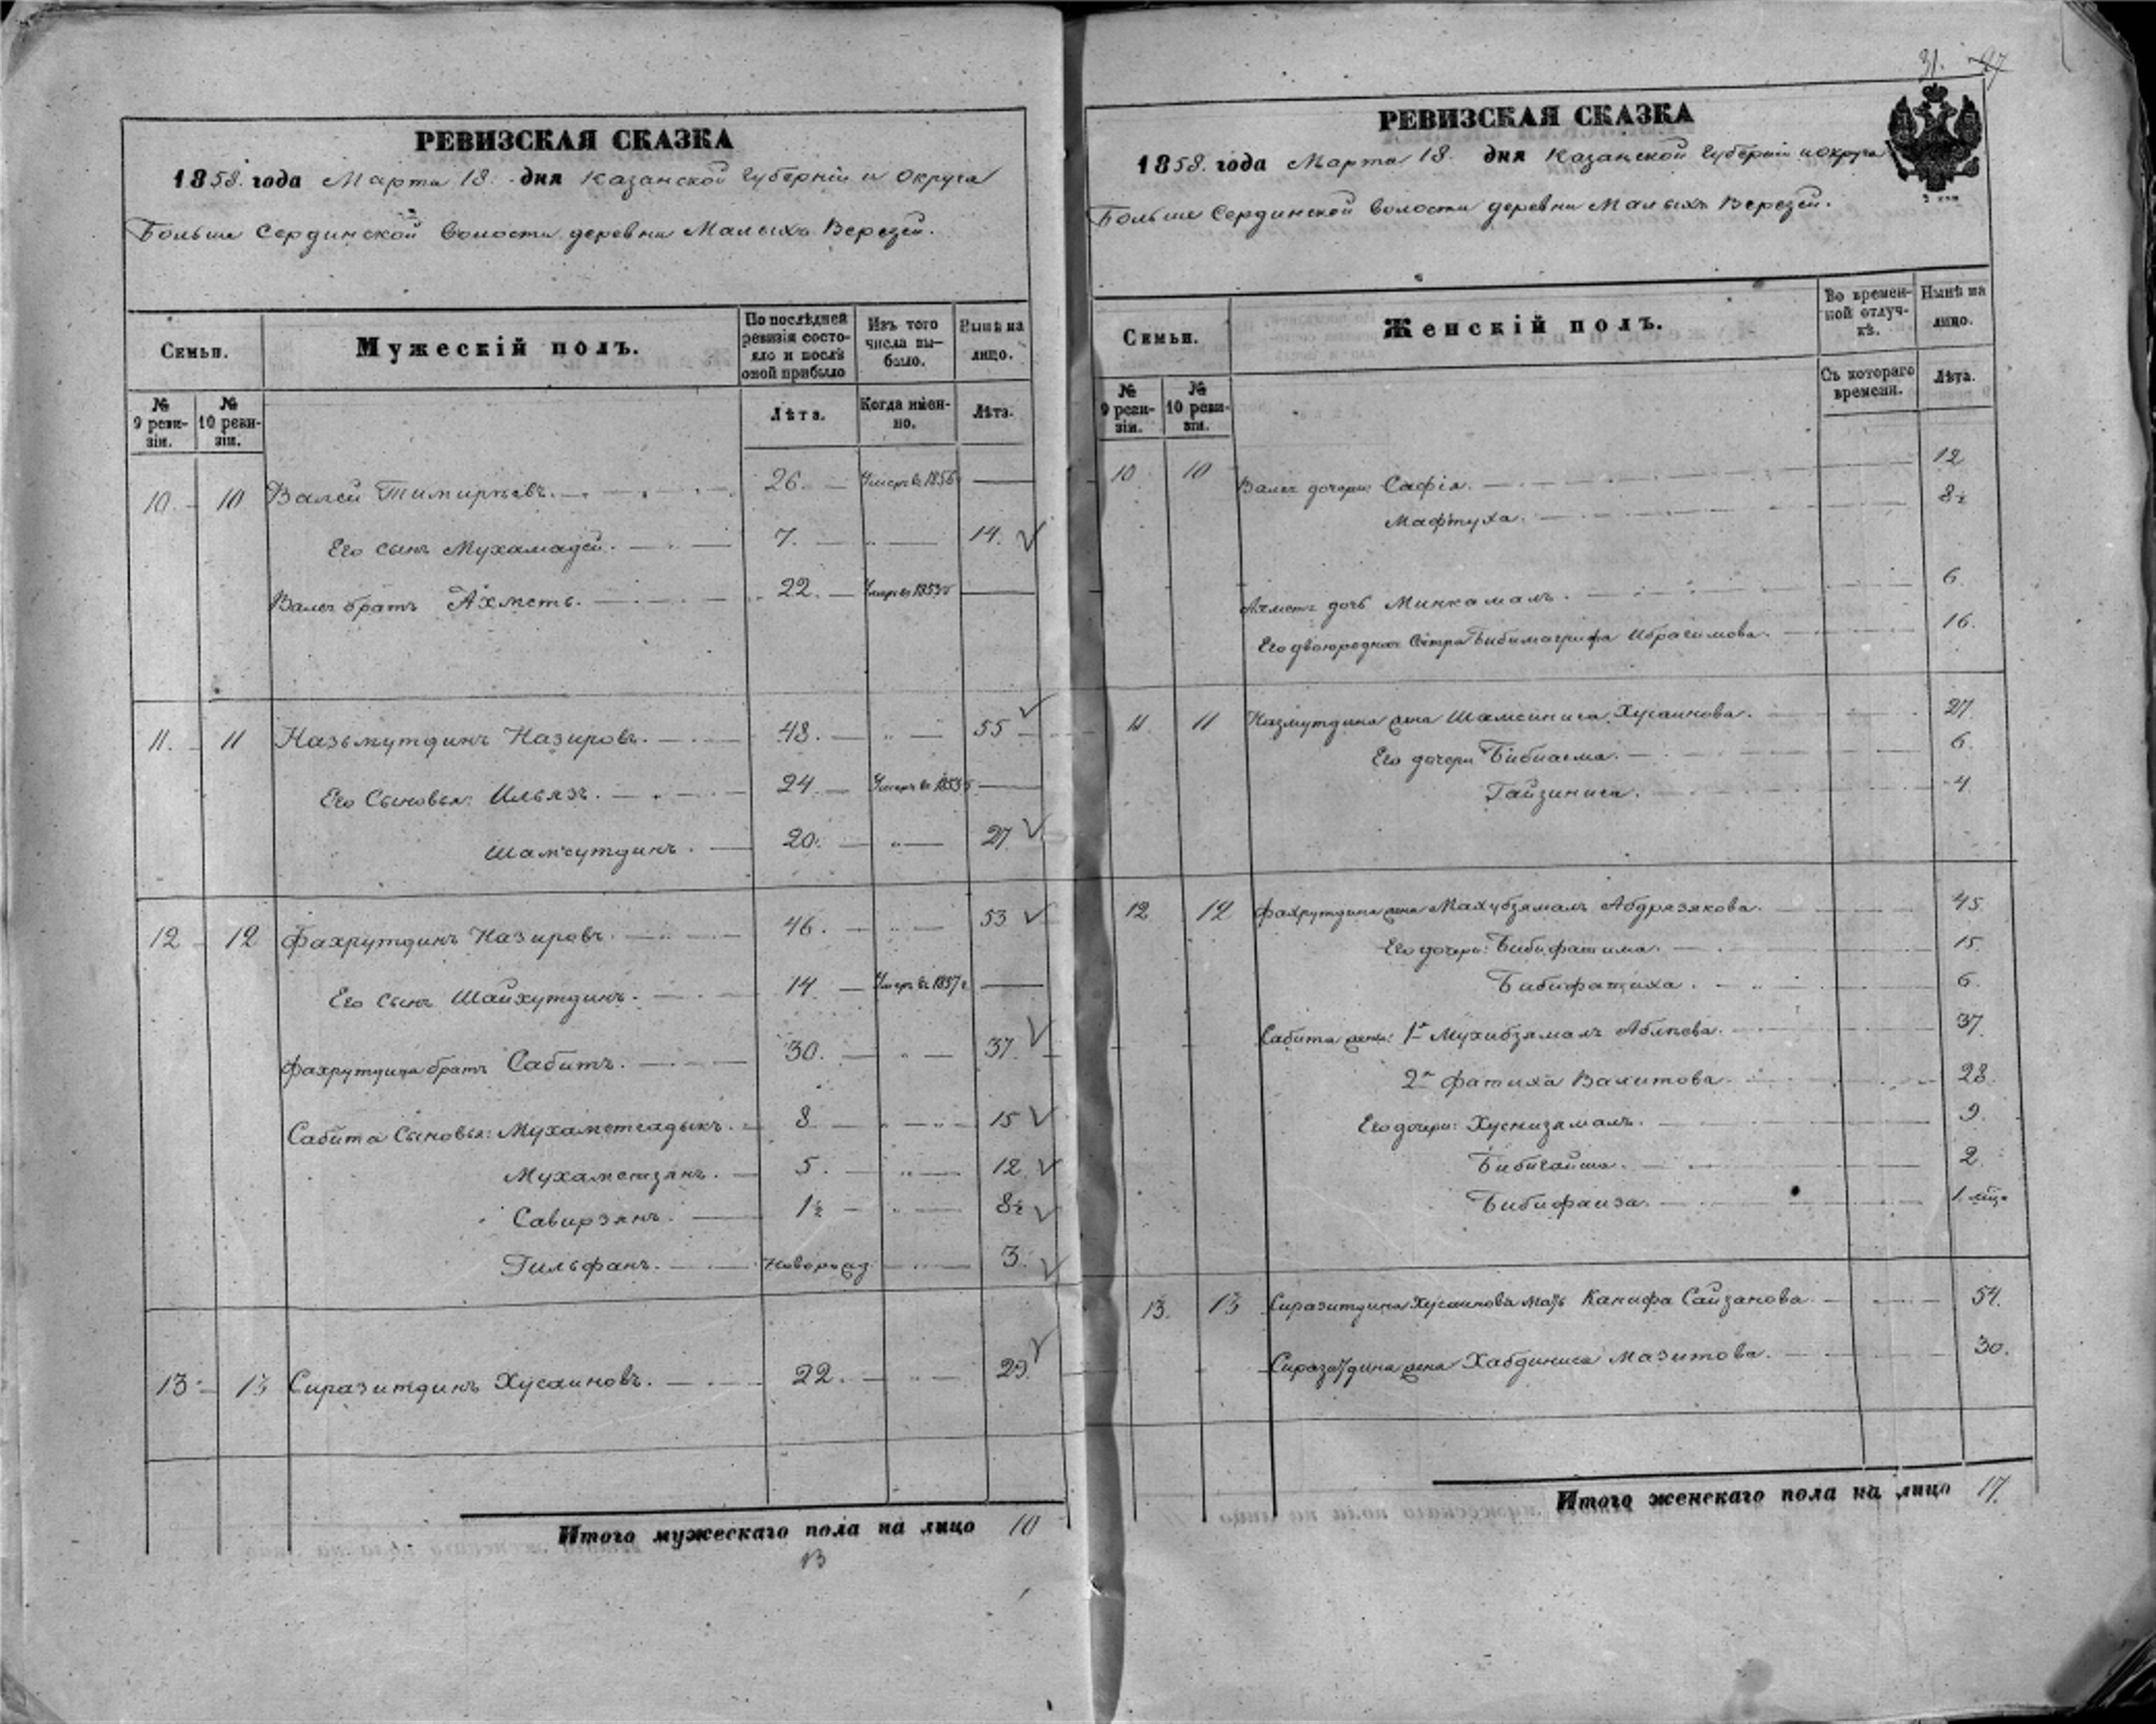 РЕВИЗСКАЯ СКАЗКА
1858. года Марта 18. дня Казанской Губерніи и Округа
Больше Сердинской волости деревни Малыхъ Верезей.
Семьи.
Мужескій полъ.
По послѣдней ревизіи состояло и послѣ оной прибыло
Изъ того числа выбыло.
Нынѣ на лицо.
№ 9 ревизіи.
№ 10 ревизіи.
Лѣта.
Когда именно.
Лѣта.
10. 10 Валей Тимирѣевъ. 26. Умеръ въ 1856
Его сынъ Мухамадей. 7. " 14.
Валея братъ Ахметъ. 22. Умеръ въ 1853 г
11. 11 Назьмутдинъ Назировъ. 48. " 55
Его Сыновья: Ильязъ. 24. Умеръ въ 1853 г
Шамсутдинъ. 20. " 27
12 12 Фахрутдинъ Назировъ. 46. " 53
Его сынъ Шайхутдинъ. 14 Умеръ въ 1857 г
Фахрутдина братъ Сабитъ. 30. " 37.
Сабита Сыновья: Мухаметсадыкъ. 8 " 15
Мухаметзянъ. 5. " 12.
Савирзянъ. 1½ " 8½
Гильфанъ. Новорожд. " 3.
13 13 Сиразитдинъ Хусаиновъ. 22. " 29.
Итого мужескаго пола на лицо 10
31. 27
РЕВИЗСКАЯ СКАЗКА
1858. года Марта 18. дня Казанской Губерніи и Округа
Больше Сердинской волости деревни Малыхъ Верезей.
Семьи.
Женскій полъ.
Во временной отлучкѣ.
Нынѣ на лицо.
№ 9 ревизіи.
№ 10 ревизіи.
Съ котораго времени.
Лѣта.
10. 10 Валея дочери: Сафія. 12
Мафтуха. 8½
Ахмета дочь Минкамалъ. 6.
Его двоюродная Сестра Бибимагрифа Ибрагимова. 16.
11. 11 Назмутдина жена Шамсиниса Хусаинова. 27.
Его дочери Бибиасма. 6.
Гайзиниса. 4
12 12 Фахрутдина жена Махубзямалъ Абдрязякова. 45.
Его дочери: Бибифатима. 15.
Бибифатиха. 6.
Сабита жены: 1я Мухибзямалъ Аблѣева. 37.
2я Фатиха Валитова. 28.
Его дочери: Хуснизямалъ. 9.
Бибигайша. 2.
Бибифаиза. 1. мѣс.
13. 13 Сиразитдина Хусаинова мать Канифа Сайзанова 54.
Сиразитдина жена Хабдиниса Мазитова. 30.
Итого женскаго пола на лицо 17.